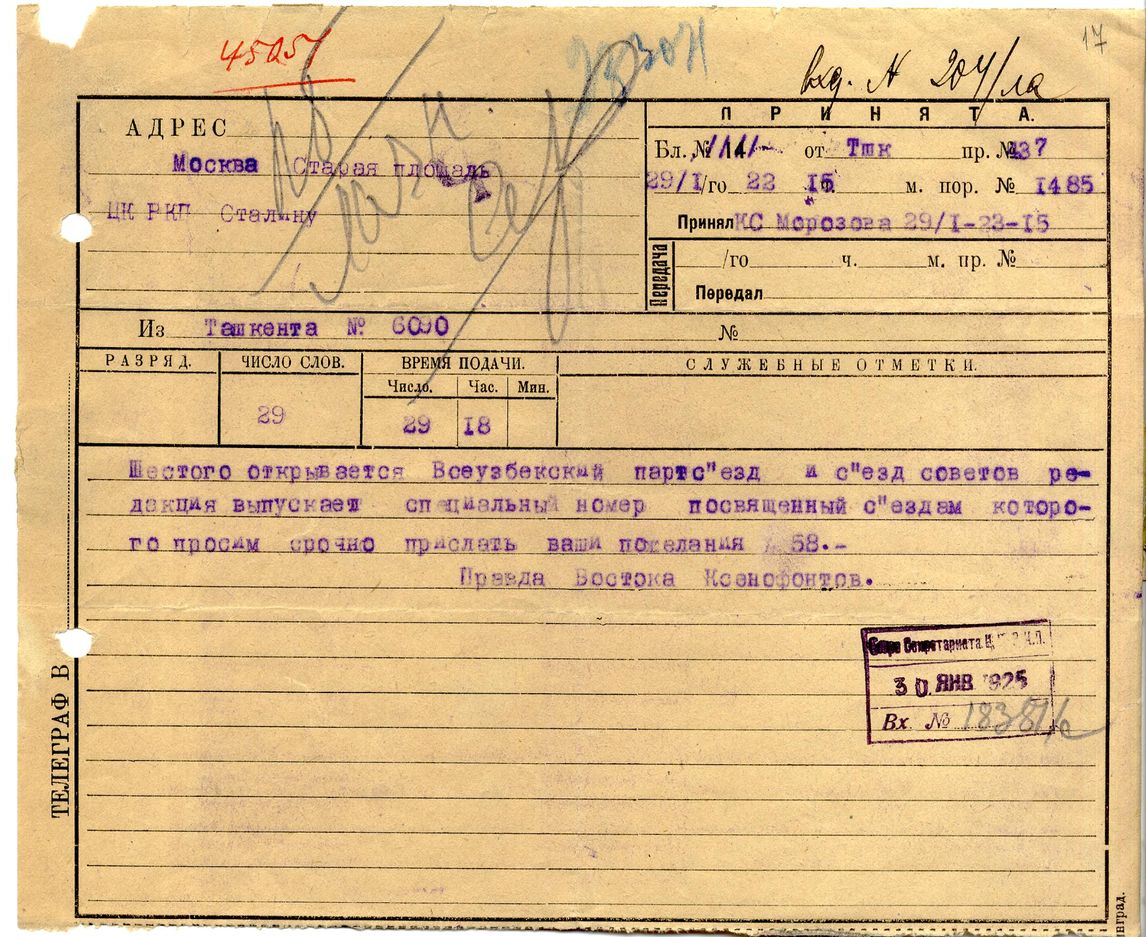 17
вхд. N 204/ла
АДРЕС
Москва Старая площадь
ЦК РКП Сталину
ПРИНЯТА.
Бл. № от Тшк пр. № 437
29/I/го 22 15 м. пор. № 1485
Принял КС Морозова 29/I-23-15
Передача
/го ч. м. пр. №
Передал
Из Ташкента № 6090 №
РАЗРЯД. ЧИСЛО СЛОВ. ВРЕМЯ ПОДАЧИ. СЛУЖЕБНЫЕ ОТМЕТКИ.
Число. Час. Мин.
29 29 18
Шестого открывается Всеузбекский партс"езд и с"езд советов ре-
дакция выпускает специальный номер посвященный с"ездам которо-
го просим срочно прислать ваши пожелания 58.-
Правда Востока Ксенофонтов.
Бюро Секретариата Ц.
30 ЯНВ 1925
Вх. №
ТЕЛЕГРАФ В